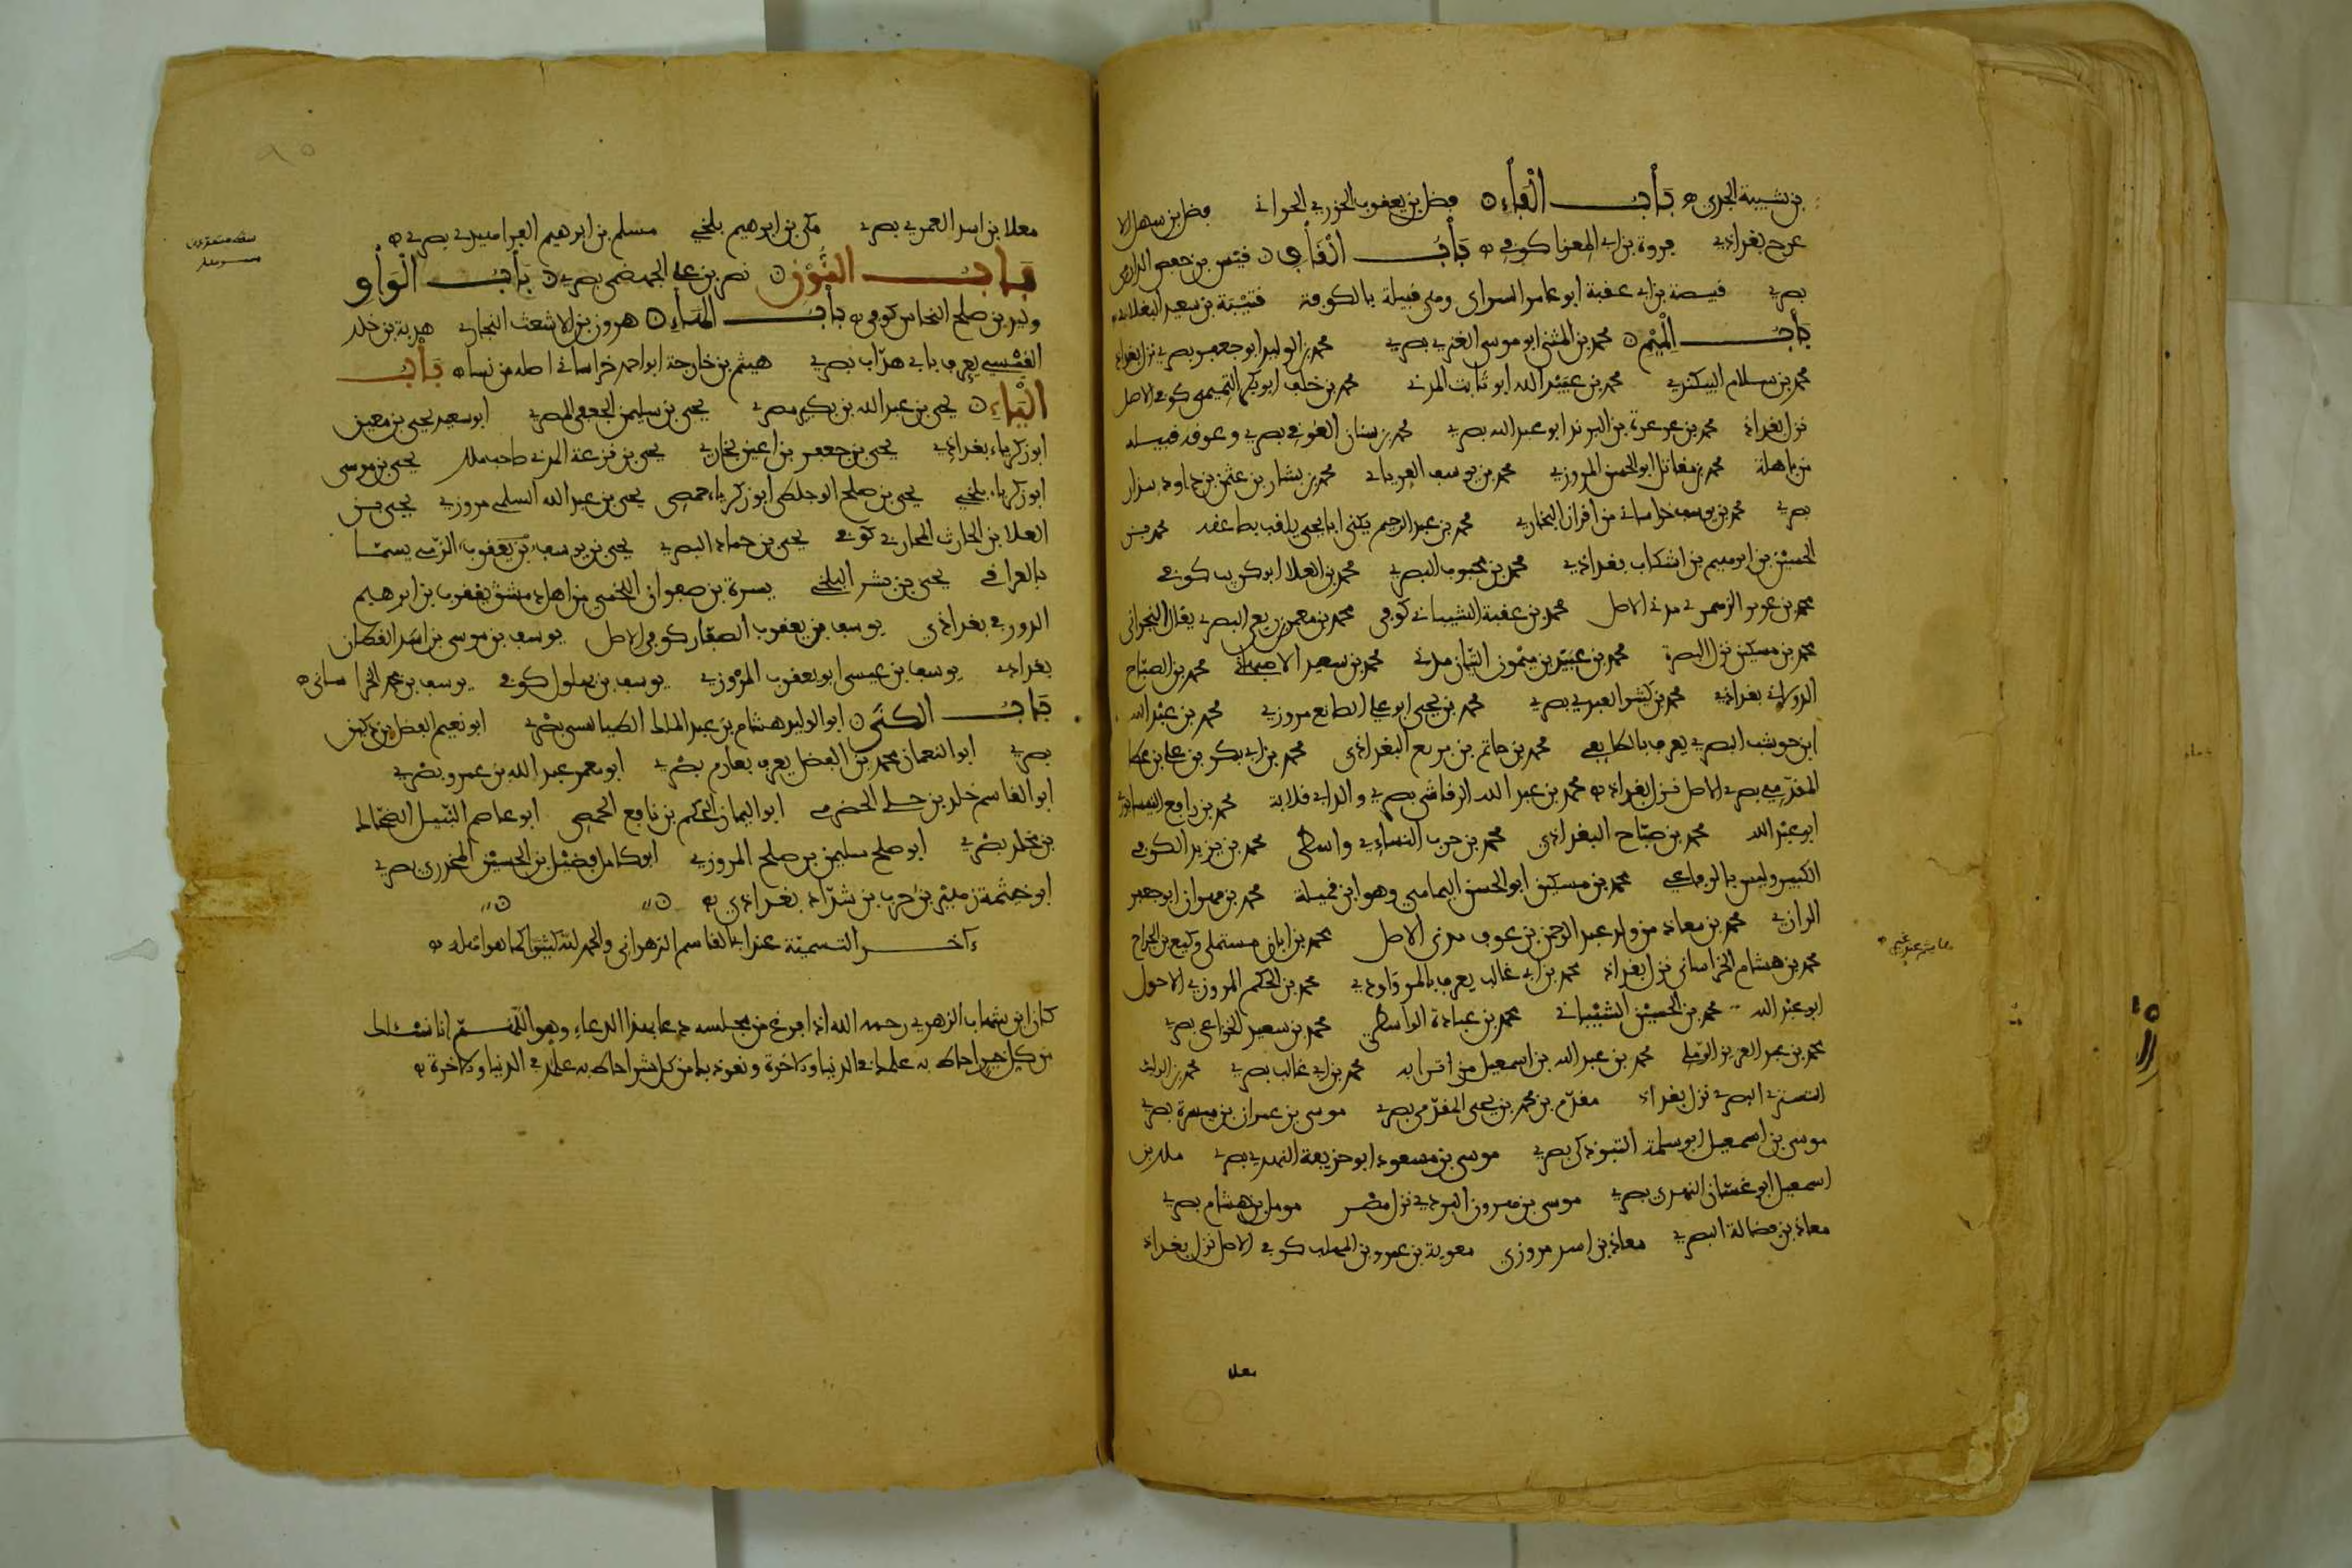 بن شيبة الجدي ه بَابُ الْفَاءِ ه فضل بن يعقوب الجزري الحراني فضل بن سهل الا
عرج بغداذي فروة بن ابي المغرا كوفي ه بَابُ الْقَافِ ه قيس بن حفص الدارمي
بصري قبيصة بن ابي عقبة ابو عامر السواى وهي قبيلة بالكوفة قتيبة بن سعيد البغلاني
بَابُ الْمِيْمِ ه محمد بن المثنى ابو موسى العنزي بصري محمد بن الوليد ابو جعفر بصري نزل بغداذ
محمد بن سلام البيكندي محمد بن عبيد الله ابو ثابت المدني محمد بن خلف ابو بكر التميمي كوفي الاصل
نزل بغداذ محمد بن عرعرة بن البرند ابو عبد الله بصري محمد بن سنان العوفي بصري وعوفه قبيله
من باهلة محمد بن مقاتل ابو الحسن المروزي محمد بن يوسف الفريابي محمد بن بشار بن عثمن بن داود بندار
بصري محمد بن يوسف خراساني من اقران البخاري محمد بن عبد الرحيم يكنى ابا يحيى يلقب بصاعقه محمد بن
الحسين بن ابرهيم بن اشكاب بغداذي محمد بن محبوب البصري محمد بن العلا ابو كريب كوفي
محمد بن غرير الزهري مدني الاصل محمد بن عقبة الشيباني كوفي محمد بن معمر بن ربعي البصري يقال البحراني
محمد بن مسكين نزل البصرة محمد بن عبيد بن ميمون التبان مدني محمد بن سعيد الاصبهاني محمد بن الصباح
الدولابي بغداذي محمد بن كثير العبدي بصري محمد بن يحيى ابو علي الصائغ مروزي محمد بن عبد الله
ابن حوشب البصري يعرف بالطايفي محمد بن حاتم بن بزيع البغداذي محمد بن ابي بكر بن علي بن عطا
المقدمي بصري الاصل نزل بغداذ ه محمد بن عبد الله الرقاشي بصري والد ابي قلابة محمد بن رافع النيسابوري
ابو عبد الله محمد بن صباح البغداذي محمد بن حرب النساءي واسطي محمد بن يزيد الكوفي
الكبير وليس بالرفاعي محمد بن مسكين ابو الحسن اليمامي وهو ابن نميلة محمد بن مهران ابو جعفر
الرازي محمد بن معاذ من ولد عبد الرحمن بن عوف مدني الاصل محمد بن ابان مستملي وكيع بن الجراح
محمد بن هشام الخراساني نزل بغداذ محمد بن ابي غالب يعرف بالمروذي محمد بن الحكم المروزي الاحول
ابو عبد الله محمد بن الحسين الشيباني محمد بن عبادة الواسطي محمد بن سعيد الخزاعي بصري
محمد بن عبد العزيز الرملي محمد بن عبد الله بن اسمعيل من اقرانه محمد بن ابي غالب بصري محمد بن الوليد
التستري البصري نزل بغداذ مقدم بن محمد بن يحيى المقدمي بصري موسى بن عمران بن ميسرة بصري
موسى بن اسمعيل ابو سلمة التبوذكي بصري موسى بن مسعود ابو حذيفة النهدي بصري ملك بن
اسمعيل ابو غسان النهدي بصري موسى بن مروان البردي نزل مصر مومل بن هشام بصري
معاذ بن فضالة البصري معاذ بن اسد مروزي معوية بن عمرو بن المهلب كوفي الاصل نزل بغداذ
معلا
معلا بن اسد العمي بصري مكي بن ابرهيم بلخي مسلم بن ابرهيم الفراهيدي بصري ه
بَابُ النُّوْنِ ه نصر بن علي الجهضمي بصري ه بَابُ الْوَاوِ
وليد بن صلح النخاس كوفي ه بَابُ الْهَاءِ ه هرون بن الاشعث البخاري هدبة بن خلد
القيسي يعرف بابي هداب بصري هيثم بن خارجة ابو احمد خراساني اصله من نسا ه بَابُ
الْيَاءِ ه يحيى بن عبد الله بن بكير مصري يحيى بن سليمن الجعفي المصري ابو سعيد يحيى بن معين
ابو زكرياء بغداذي يحيى بن جعفر بن اعين بخاري يحيى بن قزعة المدني صاحب ملك يحيى بن موسى
ابو زكرياء بلخي يحيى بن صلح الوحاظي ابو زكرياء حمصي يحيى بن عبد الله السلمي مروزي يحيى بن
العلا بن الحارث المحاربي كوفي يحيى بن حماد البصري يحيى بن يوسف بن يعقوب الزمي يسمى
بالعراقي يحيى بن بشر البلخي يسرة بن صفوان اللخمي من اهل دمشق يعقوب بن ابرهيم
الدورقي بغداذي يوسف بن يعقوب الصفار كوفي الاصل يوسف بن موسى بن راشد القطان
بغداذي يوسف بن عيسى ابو يعقوب المروزي يوسف بن بهلول كوفي يوسف بن محمد الخراساني ه
بَابُ الكُنَى ه ابو الوليد هشام بن عبد الملك الطيالسي بصري ابو نعيم الفضل بن دكين
بصري ابو النعمان محمد بن الفضل يعرف بعارم بصري ابو معمر عبد الله بن عمرو بصري
ابو القاسم خلد بن خلي الحضرمي ابو اليمان الحكم بن نافع الحمصي ابو عاصم النبيل الضحاك
بن مخلد بصري ابو صلح سليمن بن صلح المروزي ابو كامل فضيل بن الحسين الجحدري بصري
ابو خيثمة زهير بن حرب بن شداد بغداذي ه
ءاخر التسمية عند ابي القاسم الزهراني والحمد لله كثيرا كما هو اهله ه
كان ابن شهاب الزهري رحمه الله اذا فرغ من مجلسه دعا بهذا الدعاء وهو اللهم انا نسئلك
من كل خير احاط به علمك في الدنيا والاخرة ونعوذ بك من كل شر احاط به علمك في الدنيا والاخرة ه